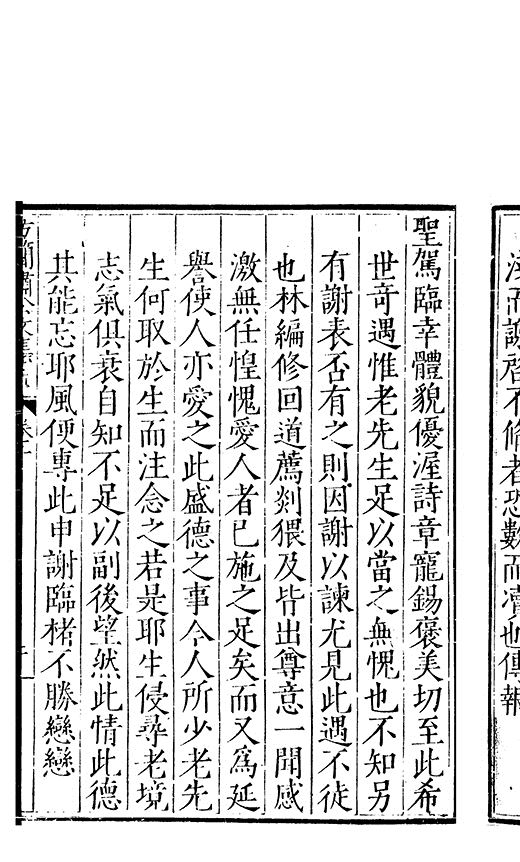 注而謝啓不脩者恐數而凟也傳報
聖駕臨幸體貌優渥詩章寵錫褒美切至此希
世竒遇惟老先生足以當之無愧也不知另
有謝表否有之則因謝以諫尤見此遇不徒
也林編修回道薦剡猥及皆出尊意一聞感
激無任惶愧愛人者已施之足矣而又為延
譽使人亦愛之此盛德之事今人所少老先
生何取於生而注念之若是耶生侵尋老境
志氣俱衰自知不足以副後望然此情此德
其能忘耶風便專此申謝臨楮不勝戀戀